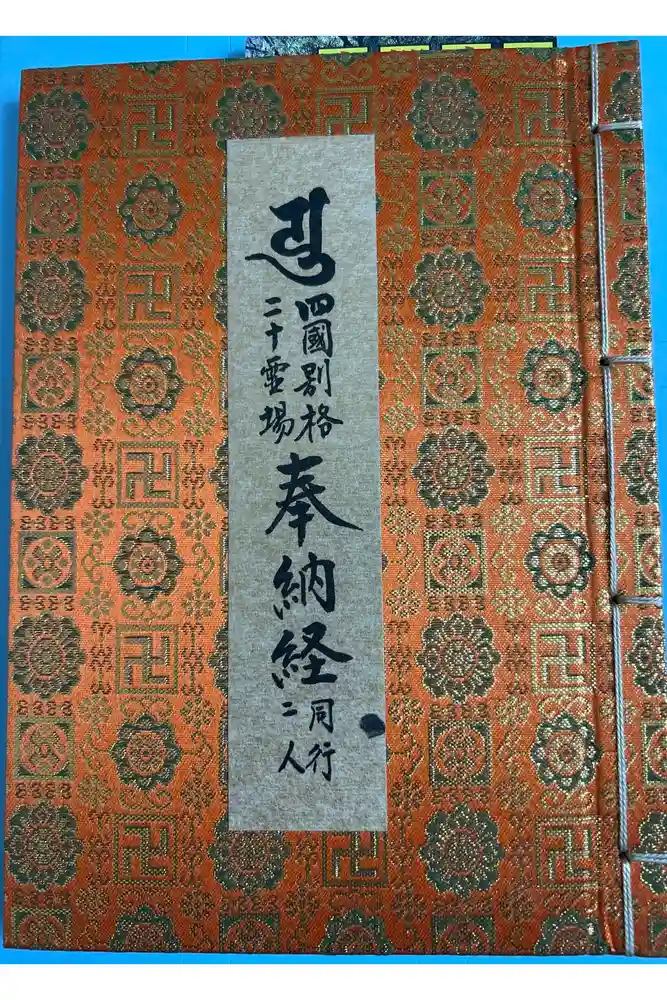 四國别格
二十霊場
奉納経
同行
二人